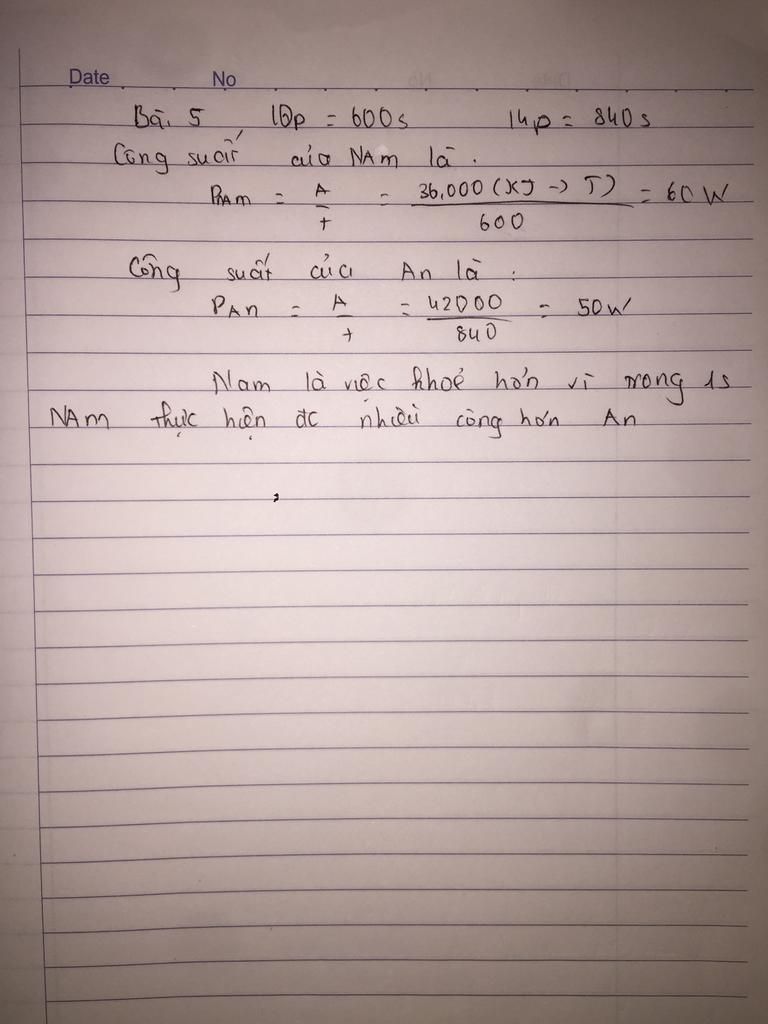 Date No
Bài 5 10p = 600s 14p = 840s
Công suất của NAM là.
PNAM = A/t = 36,000 (KJ -> J)/600 = 60 W
Công suất của An là:
PAn = A/t = 42000/840 = 50W
Nam là việc khoẻ hơn vì trong 1s
NAm thực hiện đc nhiều công hơn An